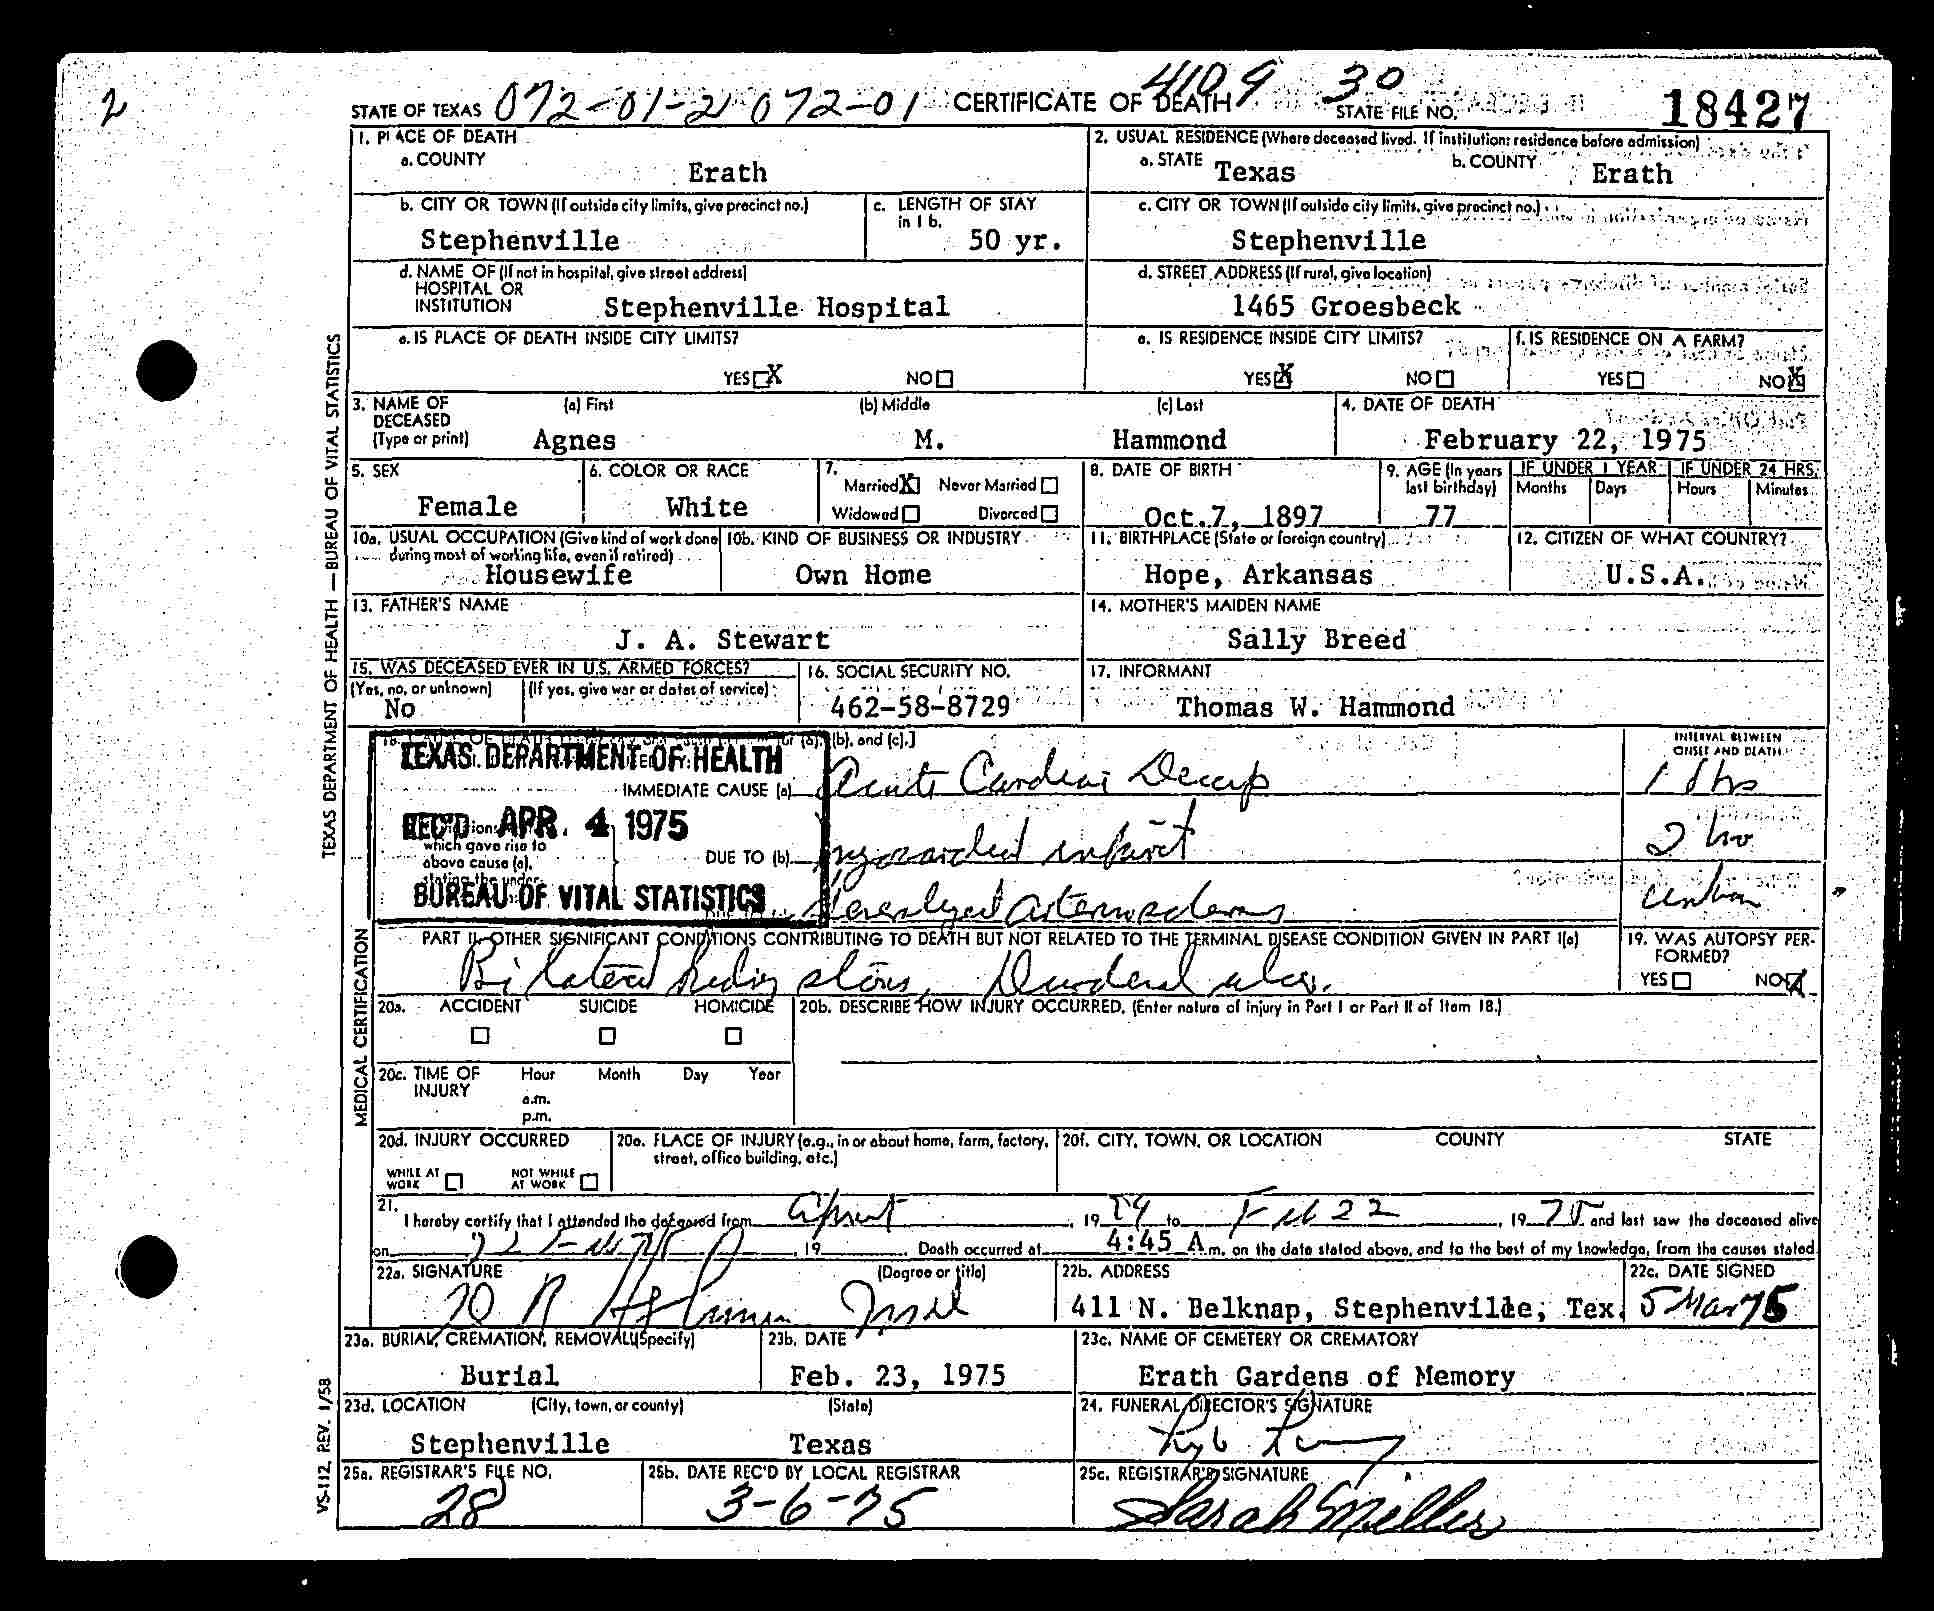 2
072-01-2 072-01 4109 30
STATE OF TEXAS CERTIFICATE OF DEATH STATE FILE NO. 18427
1. PLACE OF DEATH
a. COUNTY Erath
2. USUAL RESIDENCE (Where deceased lived. If institution: residence before admission)
a. STATE Texas b. COUNTY Erath
b. CITY OR TOWN (If outside city limits, give precinct no.) Stephenville
c. LENGTH OF STAY in 1 b. 50 yr.
c. CITY OR TOWN (If outside city limits, give precinct no.) Stephenville
d. NAME OF (If not in hospital, give street address) HOSPITAL OR INSTITUTION Stephenville Hospital
d. STREET ADDRESS (If rural, give location) 1465 Groesbeck
e. IS PLACE OF DEATH INSIDE CITY LIMITS? YES X NO
e. IS RESIDENCE INSIDE CITY LIMITS? YES X NO
f. IS RESIDENCE ON A FARM? YES NO X
3. NAME OF DECEASED (Type or print) (a) First Agnes (b) Middle M. (c) Last Hammond
4. DATE OF DEATH February 22, 1975
5. SEX Female
6. COLOR OR RACE White
7. Married X Never Married Widowed Divorced
8. DATE OF BIRTH Oct.7, 1897
9. AGE (In years last birthday) 77
IF UNDER 1 YEAR Months Days IF UNDER 24 HRS. Hours Minutes
10a. USUAL OCCUPATION (Give kind of work done during most of working life, even if retired) Housewife
10b. KIND OF BUSINESS OR INDUSTRY Own Home
11. BIRTHPLACE (State or foreign country) Hope, Arkansas
12. CITIZEN OF WHAT COUNTRY? U.S.A.
13. FATHER'S NAME J. A. Stewart
14. MOTHER'S MAIDEN NAME Sally Breed
15. WAS DECEASED EVER IN U.S. ARMED FORCES? (Yes, no, or unknown) No (If yes, give war or dates of service)
16. SOCIAL SECURITY NO. 462-58-8729
17. INFORMANT Thomas W. Hammond
TEXAS DEPARTMENT OF HEALTH
REC'D APR. 4 1975
BUREAU OF VITAL STATISTICS
(b), and (c).]
INTERVAL BETWEEN ONSET AND DEATH
IMMEDIATE CAUSE (a) Acute Cardiac Decomp
which gave rise to above cause (a), stating the under-
DUE TO (b) myocardial infarct 2 hrs
Generalized Arteriosclerosis
PART II. OTHER SIGNIFICANT CONDITIONS CONTRIBUTING TO DEATH BUT NOT RELATED TO THE TERMINAL DISEASE CONDITION GIVEN IN PART I(a)
Bilateral kidney stones, Duodenal ulcer.
19. WAS AUTOPSY PERFORMED? YES NO X
20a. ACCIDENT SUICIDE HOMICIDE
20b. DESCRIBE HOW INJURY OCCURRED. (Enter nature of injury in Part I or Part II of Item 18.)
20c. TIME OF INJURY Hour Month Day Year a.m. p.m.
20d. INJURY OCCURRED WHILE AT WORK NOT WHILE AT WORK
20e. PLACE OF INJURY (e.g., in or about home, farm, factory, street, office building, etc.)
20f. CITY, TOWN, OR LOCATION COUNTY STATE
21. I hereby certify that I attended the deceased from , 19 to Feb 22 , 1975 and last saw the deceased alive
on 22 Feb 75 , 19 . Death occurred at 4:45 A.m. on the date stated above, and to the best of my knowledge, from the causes stated.
22a. SIGNATURE (Degree or title)
22b. ADDRESS 411 N. Belknap, Stephenville, Tex.
22c. DATE SIGNED 5 Mar 75
23a. BURIAL, CREMATION, REMOVAL (Specify) Burial
23b. DATE Feb. 23, 1975
23c. NAME OF CEMETERY OR CREMATORY Erath Gardens of Memory
23d. LOCATION (City, town, or county) Stephenville (State) Texas
24. FUNERAL DIRECTOR'S SIGNATURE
25a. REGISTRAR'S FILE NO. 28
25b. DATE REC'D BY LOCAL REGISTRAR 3-6-75
25c. REGISTRAR'S SIGNATURE Sarah Miller
TEXAS DEPARTMENT OF HEALTH — BUREAU OF VITAL STATISTICS
MEDICAL CERTIFICATION
VS-112, REV. 1/58